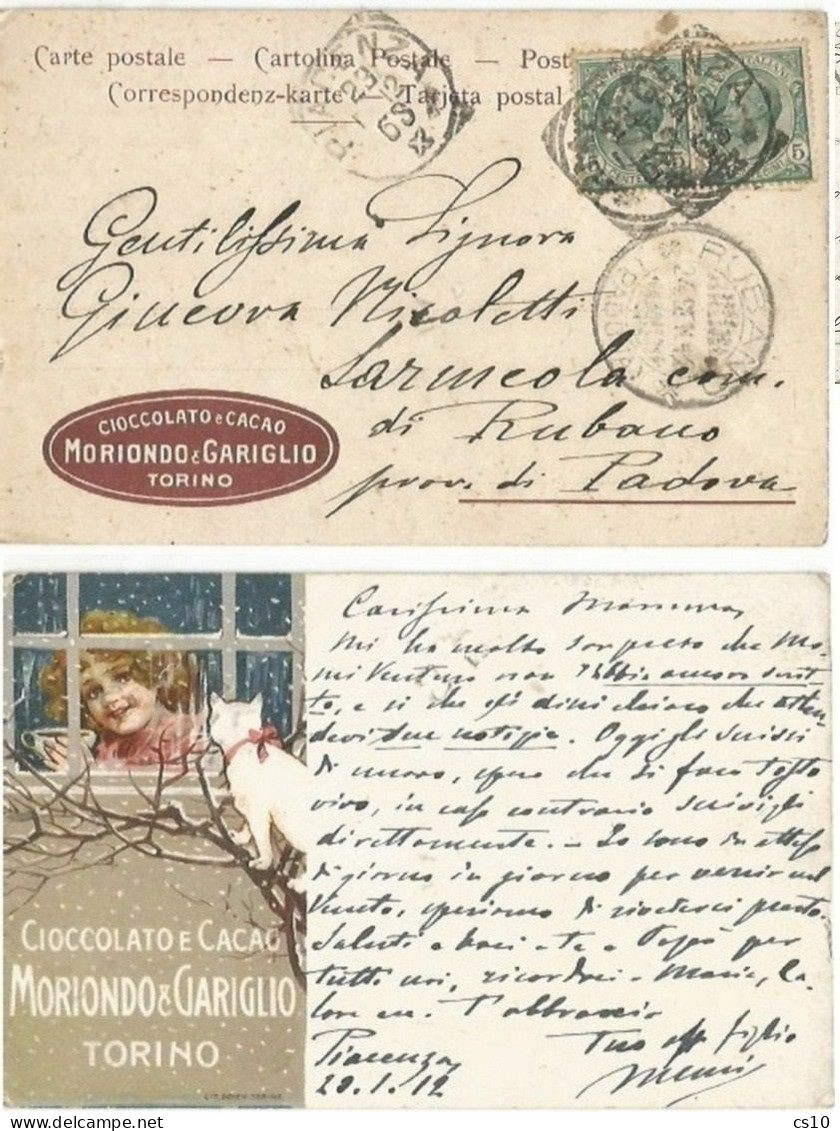 Carte postale — Cartolina Postale — Post
Correspondenz-karte — Tarjeta postal
PIACENZA
5
RUBANO
Gentilissima Signora
Ginevra Nicoletti
Sarmeola com.
di Rubano
prov. di Padova
CIOCCOLATO e CACAO
MORIONDO & GARIGLIO
TORINO
Carissima Mamma,
Mi ha molto sorpreso che Mo-
mi Venturo non abbia ancora scrit-
to, e sì che gli dichiaro che atten-
devi sue notizie. Oggi gli scrissi
di nuovo, spero che si farà tosto
vivo, in caso contrario scrivigli
direttamente. – Io sono in attesa
di giorno in giorno per venir nel
Veneto, speriamo di rivederci presto.
Saluti e baci a te e Papà per
tutti voi, ricordi Maria,
T'abbraccio
Tuo aff figlio
Piacenza
20.1.12
CIOCCOLATO E CACAO
MORIONDO & GARIGLIO
TORINO
LIT. DOYEN-TORINO
cs10